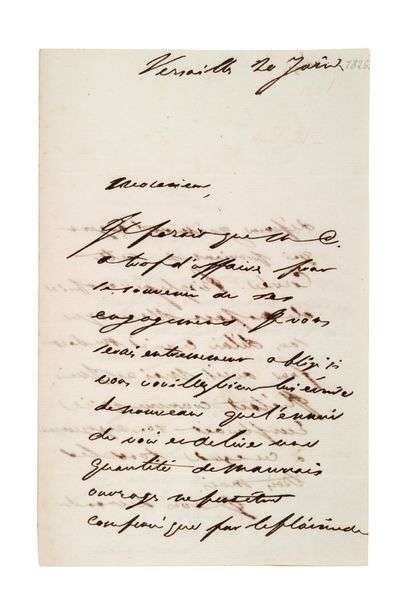 Versaille 20 Juin 1826
Monsieur,
Il paroit que M C.
a trop d'affaire pour
se souvenir de ses
engagemens. Je vous
serai extremement obligé si
vous vouillez bien lui écrire
de nouveau que l'ennui
de voir et de lire une
quantité de mauvais
ouvrage ne peut être
compensé que par le plaisir de